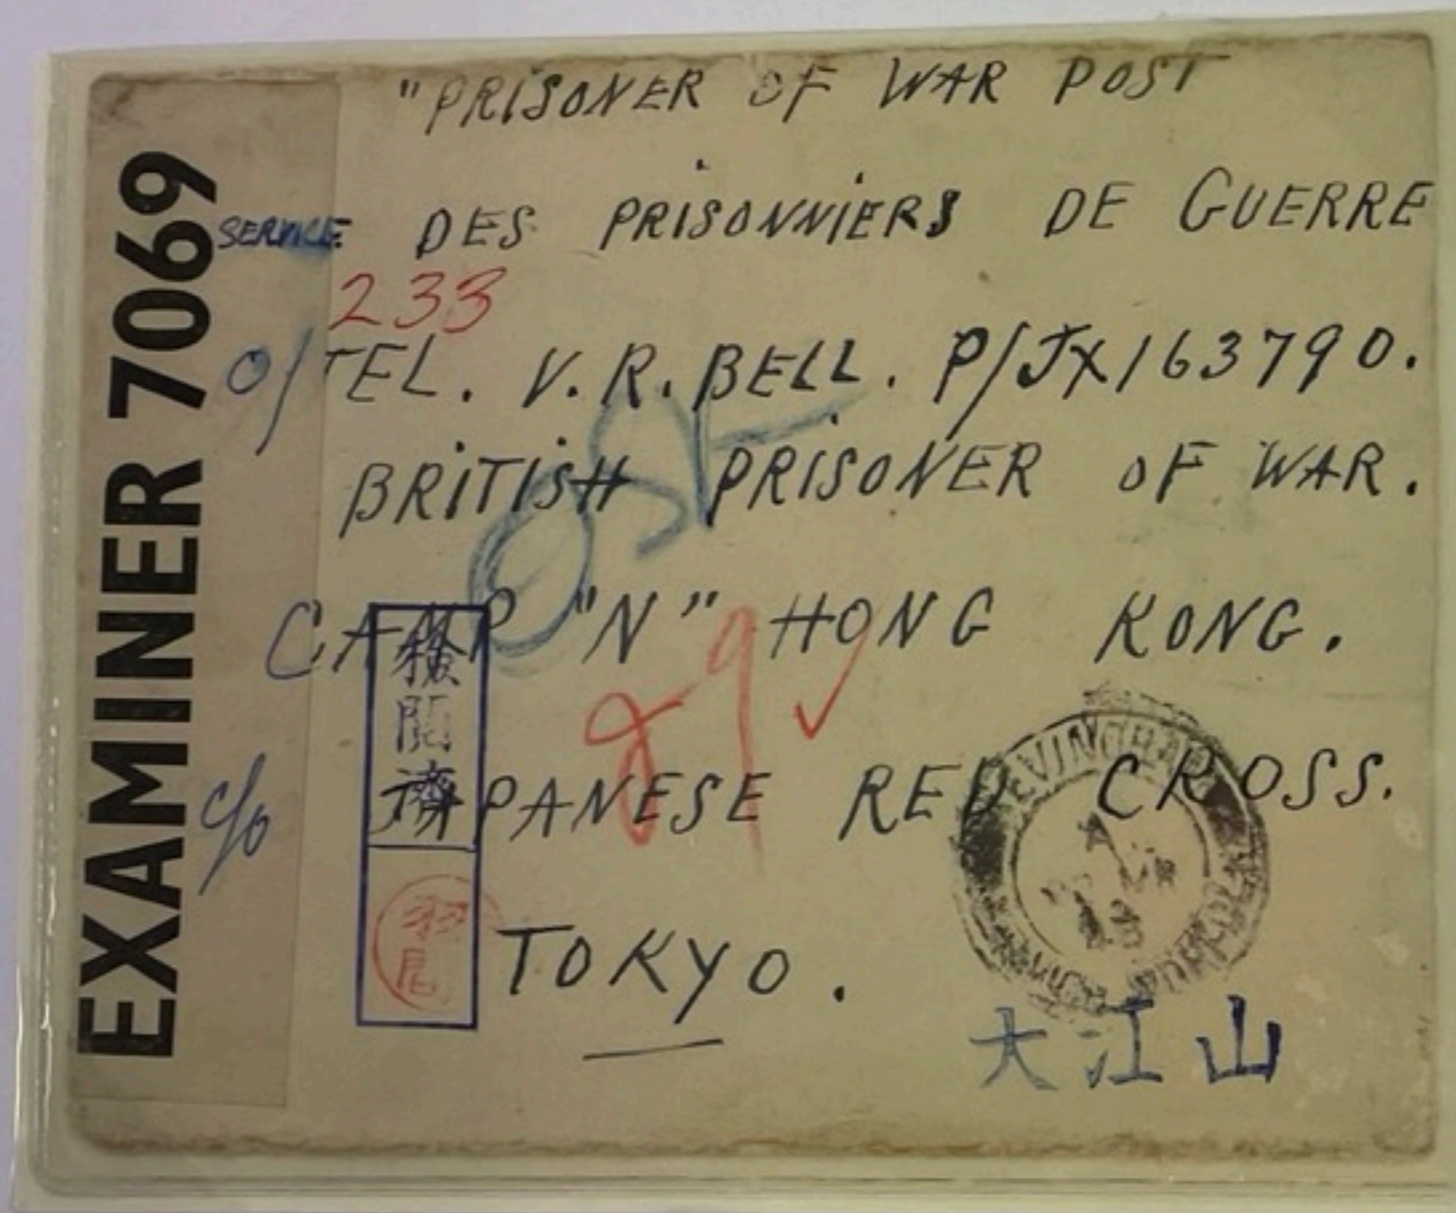 EXAMINER 7069
"PRISONER OF WAR POST
SERVICE DES PRISONNIERS DE GUERRE
233
O/TEL. V.R. BELL. P/JX163790.
BRITISH PRISONER OF WAR.
CAMP "N" HONG KONG.
檢閲濟
c/o JAPANESE RED CROSS.
TOKYO.
大江山